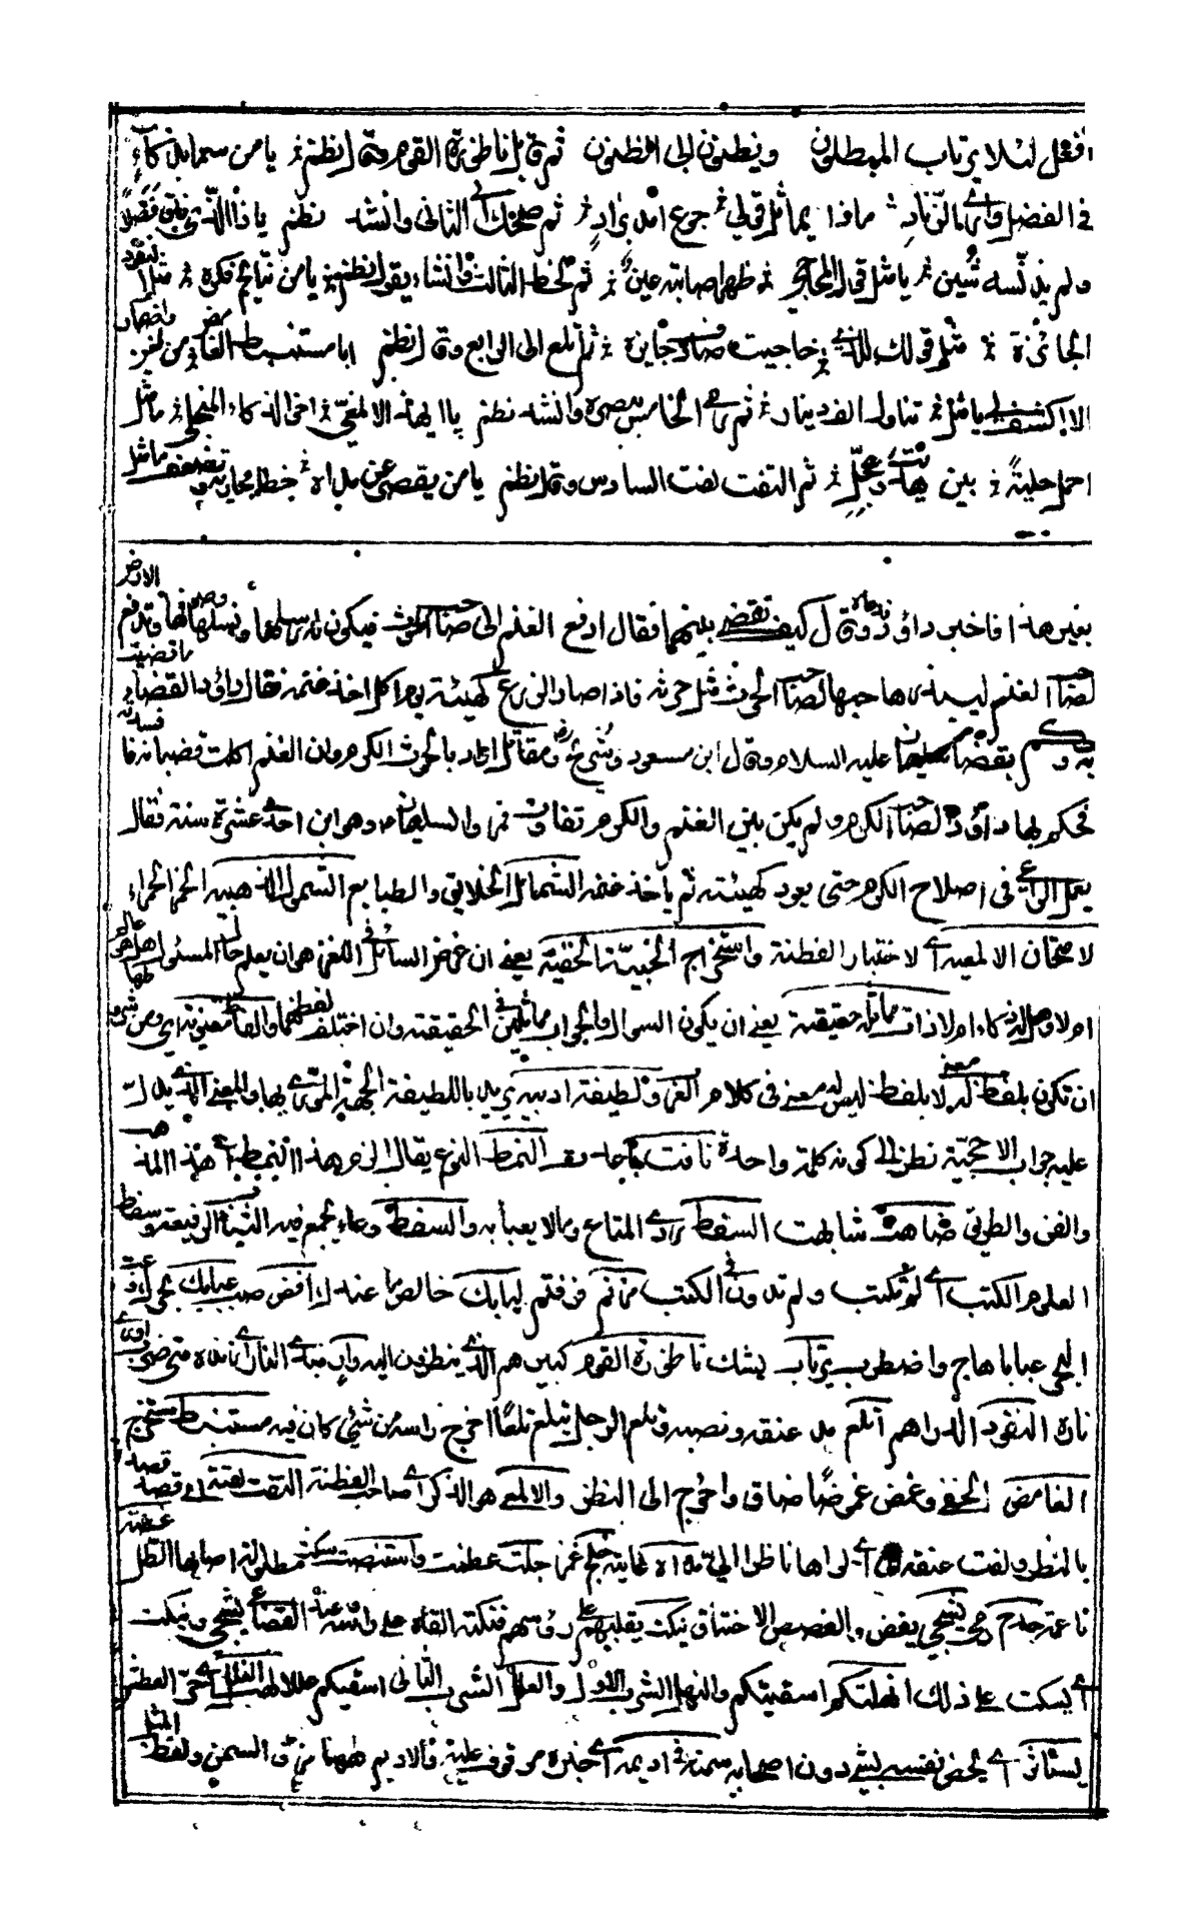 افعل لئلا يرتاب المبطلون ويظنون بى الظنون ثم قابل ناظورة القوم وقال نظم يا من سما بذكاء
فى الفضل وارى الزناد ماذا يماثل قولى جوع امد بزاد ثم ضحك الى الثانى وانشد نظم يا ذا الذى فاق فضلا
ولم يدنسه شين يا مثل قول المحاجى ظهر اصابته عين ثم لحظ الثالث وانشاء يقول نظم يا من نتايج فكره مثل النقود
الجائزة ما مثل قولك للذى حاجيت صادف جايزة ثم اتلع الى الرابع وقال نظم ايا مستنبط الغامض من لغز واضمار
الا اكشف لى ما مثل تناول الف دينار ثم رمى الخامس ببصره وانشد نظم يا ايهذا الالمعى اخو الذكاء المنجلى ما مثل
اهمل حلية بين هديت وعجل ثم التفت لفت السادس وقال نظم يا من يقصر عن مداه خطا مجاريه وتضعف ما مثل
بعين هذا فاخبر داؤد وقال كيف تقضى بينهما فقال ادفع الغنم الى صاحب الحرث فيكون له رسلها ونسلها وصوفها وتدفع الارض
لصاحب الغنم ليبذر صاحبها لصاحب الحرث مثل حرثه فاذا صار الزرع كهيئته يوم اكل اخذ غنمه فقال داؤد القضاء ما قضيت
به وحكم بقضاء سليمان عليه السلام وقال ابن مسعود وشريح ومقاتل المراد بالحرث الكرم وان الغنم اكلت قضبانه فافسدته
فحكم بها داؤد لصاحب الكرم ولم يكن بين الغنم والكرم تفاوت فمروا بسليمان وهو ابن احدى عشرة سنة فقال
يعمل الراعى فى اصلاح الكرم حتى يعود كهيئته ثم ياخذ غنمه الشمائل الخلايق والطبايع الشمول الذهبية الخمر الحمراء
لامتحان الالمعية اى لاختبار الفطنة واستخراج الخبية الخفية يعنى ان غرض السائل فى اللغز هو ان يعلم حال المسئول اهو عالم
ام لا وهل له ذكاء ام لا ذات مماثلة حقيقة يعنى ان يكون السوال والجواب مماثلين فى الحقيقة وان اختلف لفظهما والفاظ معنوية اى ومن شروطها
ان تكون بلفظ له معنى لا بلفظ ليس له معنى فى كلام العرب ولطيفة ادبية يريد باللطيفة الجهة المورى بها والمعنى الذى يدل
عليه جواب الاحجية نظرا الى كونه كلمة واحدة نافت باجد مقد النمط النوع يقال الزم هذا النمط اى هذا المذهب
والفن والطريق ضاهت شابهت السقط ردى المتاع وما لا يعبا به والسفط وعاء يجمع فيه الثياب الرفيعة وسفط
العلوم الكتب اى لم تكتب ولم تدون فى الكتب من نم من فتم لبابك خالص ما عندك افض صب عبابك بحرك وعب
البحر عبابا هاج واضطرب يرتاب يشك ناظورة القوم كبيرهم الذى ينظرون اليه وارى مبدى النار الزناده متى ضرب اورى
ناره النقود الدراهم اتلع مد عنقه ونصبه وتلع الرجل يتلع تلعا اخرج راسه من شئ كان فيه مستنبط مستخرج
الغامض الخفى وغمض غمضا ضاق واحوج الى النظر والالمعى هو الذكى اى صاحب الفطنة التفت لفتة اى قصد قصده
بالنظر ولفت عنقه اى لواها ناظرا الى مداه غايته خلج غمز اجلت عطفت واستنصت سكت مطلولة اصابها الطل
ناعمة جدح يشجى يغص والغصص الاختناق ينكت يقلبهم على رؤسهم فنكته القاه على راسه عند الفصاحة يشجى وينكت
اى يسكت على ذلك انهلتكم اسقيتكم والنهل الشرب الاول والعلل الشرب الثانى اسقيكم عللا لهب الغلل اى حر العطش
يستاثر اى يخص نفسه بشئ دون اصحابه سمنه فى اديمه اى خيره موقوف عليه فالاديم ههنا زق السمن ولفظ المثل